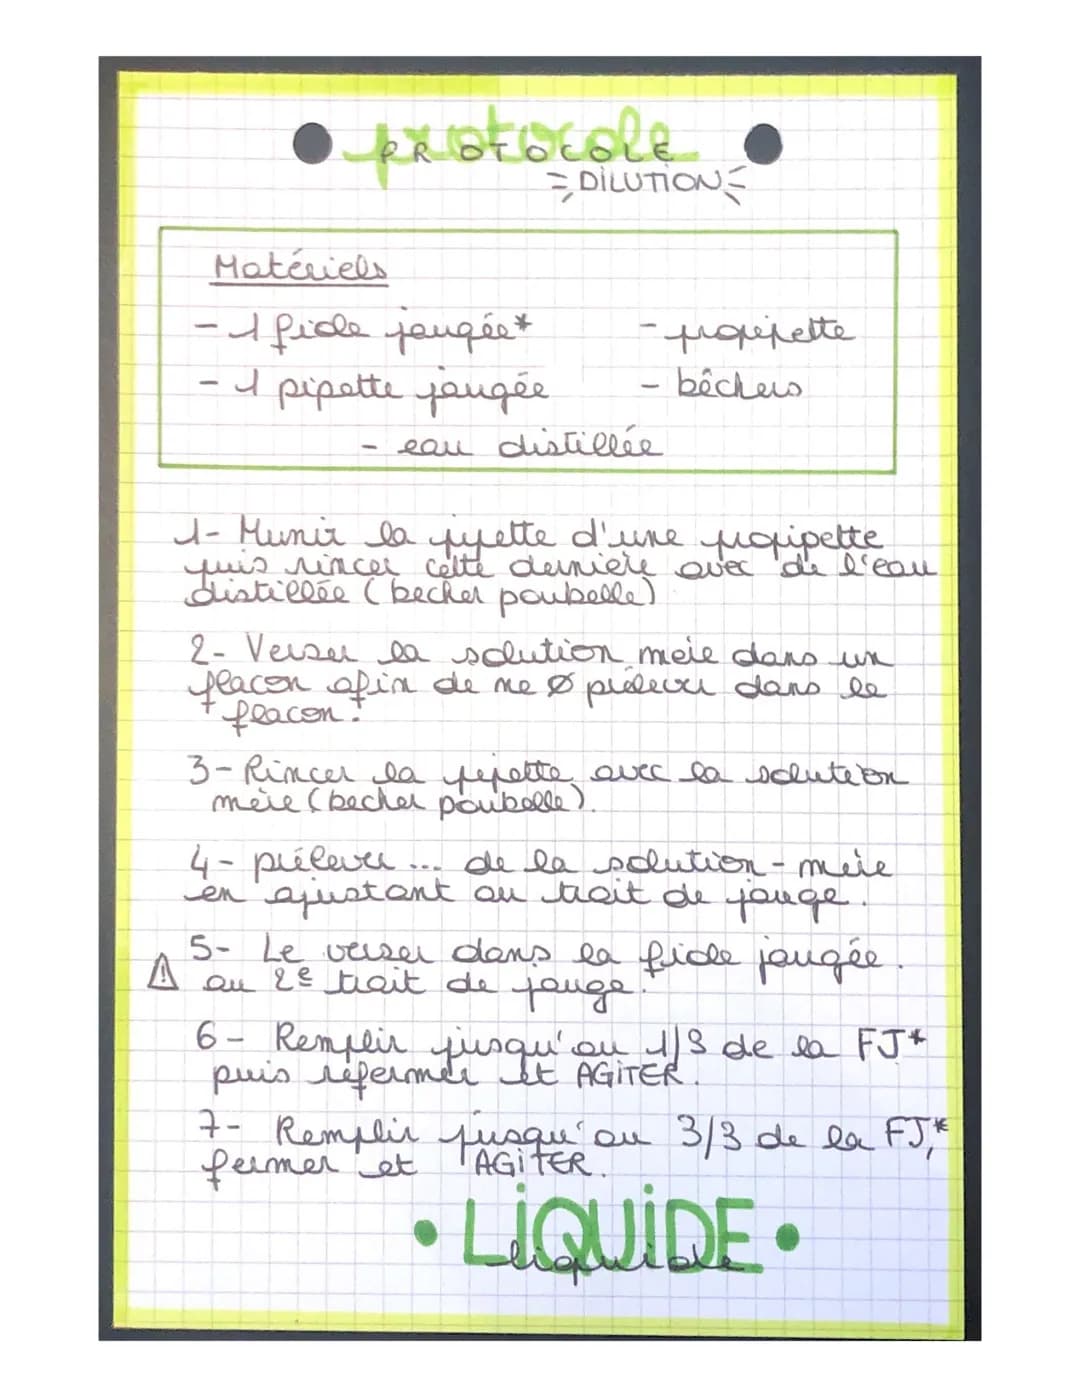 protocole
PROTOCOLE
DILUTION
Matériels
- 1 fiole jaugée* - propipette
- 1 pipette jaugée - béchers
- eau distillée
1- Munir la pipette d'une propipette
puis rincer cette dernière avec de l'eau
distillée (becher poubelle)
2- Verser la solution mère dans un
flacon afin de ne Ø prélever dans le
flacon.
3- Rincer la pipette avec la solution
mère (becher poubelle).
4- prélever ... de la solution-mère
en ajustant au trait de jauge.
5- Le verser dans la fiole jaugée.
⚠ au 2e trait de jauge.
6- Remplir jusqu'au 1/3 de la FJ*
puis refermer et AGITER.
7- Remplir jusqu'au 3/3 de la FJ,*
fermer et AGITER.
• LIQUIDE •
liquide